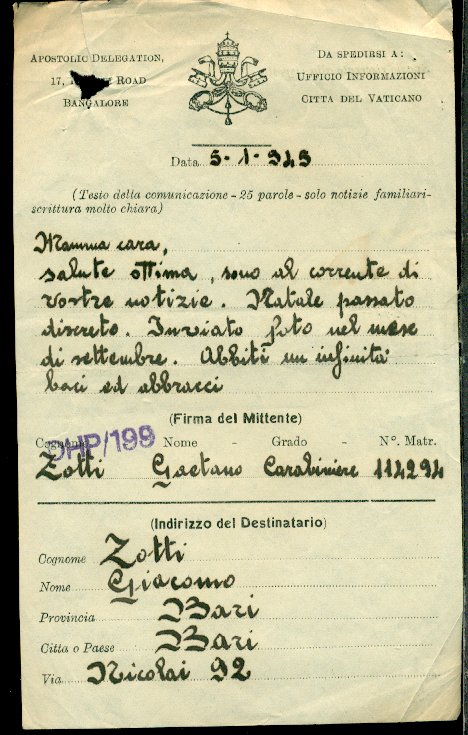 APOSTOLIC DELEGATION,
17, ROAD
BANGALORE
DA SPEDIRSI A :
UFFICIO INFORMAZIONI
CITTA DEL VATICANO
Data 5-1-945
(Testo della comunicazione - 25 parole - solo notizie familiari-
scrittura molto chiara)
Mamma cara,
salute ottima, sono al corrente di
vostre notizie. Natale passato
discreto. Inviato foto nel mese
di settembre. Abbiti un infinità
baci ed abbracci
(Firma del Mittente)
DHP/199
Cognome Nome - Grado - N°. Matr.
Zotti Gaetano Carabiniere 114294
(Indirizzo del Destinatario)
Cognome Zotti
Nome Giacomo
Provincia Bari
Citta o Paese Bari
Via Nicolai 92